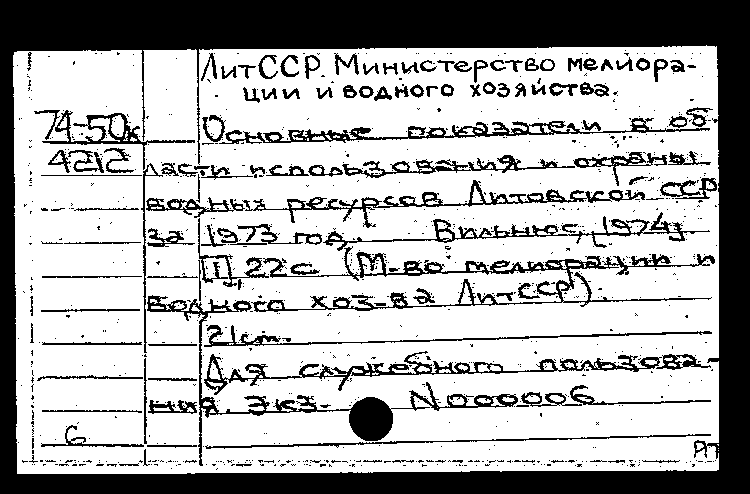 ЛитССР. Министерство мелиора-
ции и водного хозяйства.
74-50к Основные показатели в об-
4212 ласти использования и охраны
водных ресурсов Литовской ССР
за 1973 год. Вильнюс, [1974].
[I], 22 с. (М-во мелиорации и
водного хоз-ва ЛитССР).
21 cm.
Для служебного пользова-
ния. Экз. N 000006.
6
РТ